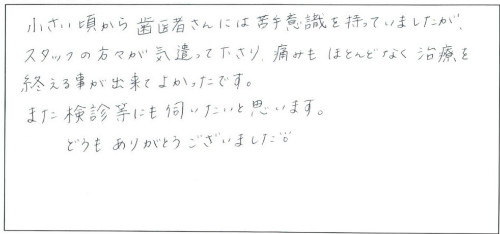 小さい頃から歯医者さんには苦手意識を持っていましたが、
スタッフの方々が気遣って下さり、痛みもほとんどなく治療を
終える事が出来てよかったです。
また検診等にも伺いたいと思います。
どうもありがとうございました。